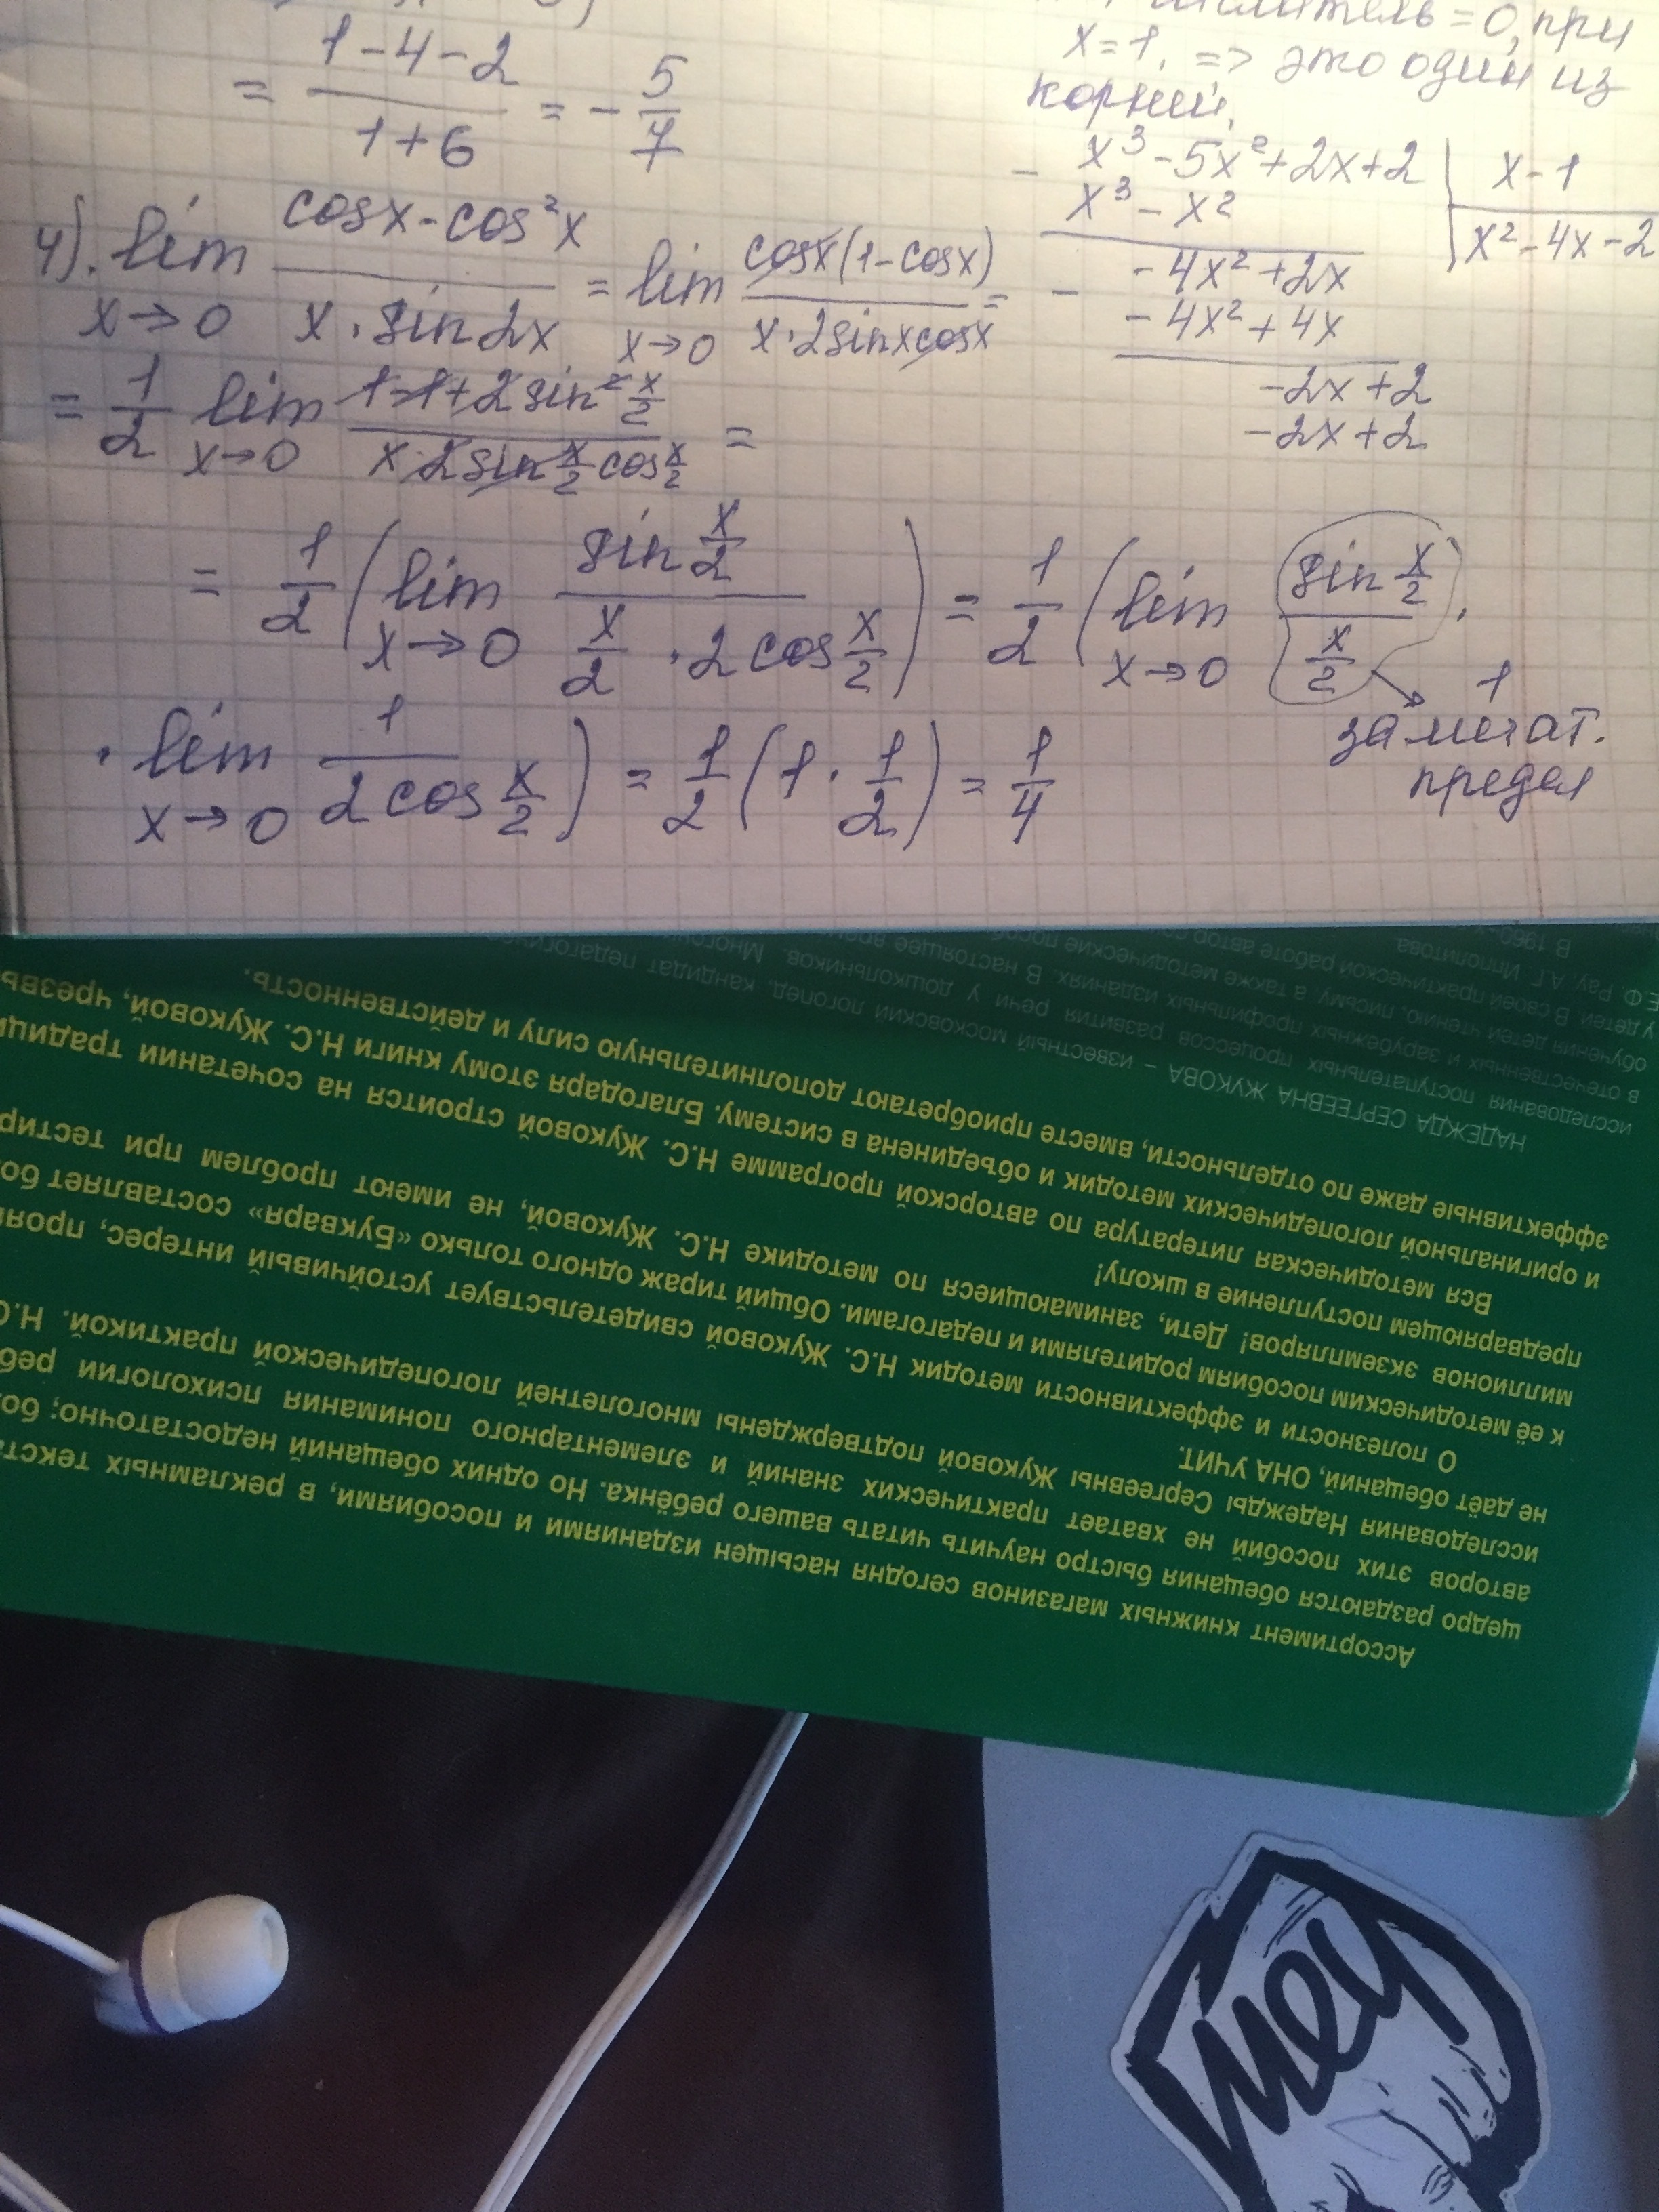 = (1-4-2)/(1+6) = -5/7
=0, при
x=1, => это один из
корний.
x³-5x²+2x+2 | x-1
- x³-x² | x²-4x-2
-4x²+2x
- -4x²+4x
-2x+2
-2x+2
4). lim x→0 (cosx-cos²x)/(x·sin2x) = lim x→0 (cosx(1-cosx))/(x·2sinxcosx) =
= 1/2 lim x→0 (1-1+2sin² x/2)/(x·2sin x/2 cos x/2) =
= 1/2 (lim x→0 (sin x/2)/(x/2 · 2cos x/2)) = 1/2 (lim x→0 (sin x/2)/(x/2) ·
1
замечат.
предел
· lim x→0 1/(2cos x/2)) = 1/2 (1 · 1/2) = 1/4
Ассортимент книжных магазинов сегодня насыщен изданиями и пособиями, в рекламных
щедро раздаются обещания быстро научить читать вашего ребёнка. Но одних обещаний недостаточно;
авторов этих пособий не хватает практических знаний и элементарного понимания психологии
исследования Надежды Сергеевны Жуковой подтверждены многолетней логопедической практикой.
не даёт обещаний, ОНА УЧИТ.
О полезности и эффективности методик Н.С. Жуковой свидетельствует устойчивый интерес,
к её методическим пособиям родителями и педагогами. Общий тираж одного только «Букваря» составляет
миллионов экземпляров! Дети, занимающиеся по методике Н.С. Жуковой, не имеют проблем при
предваряющем поступление в школу!
Вся методическая литература по авторской программе Н.С. Жуковой строится на сочетании
и оригинальной логопедических методик и объединена в систему. Благодаря этому книги Н.С. Жуковой,
эффективные даже по отдельности, вместе приобретают дополнительную силу и действенность.
НАДЕЖДА СЕРГЕЕВНА ЖУКОВА – известный московский логопед, кандидат
исследования поступательных процессов развития речи у дошкольников.
в отечественных и зарубежных профильных изданиях. В настоящее
обучения детей чтению, письму, а также методические
у детей. В своей практической работе автор
Е.Ф. Рау, А.Г. Ипполитова
меч